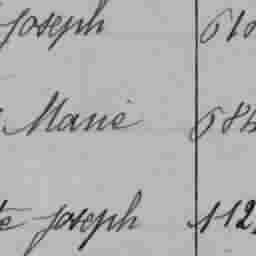 Joseph 610
Marie 684
te Joseph 112